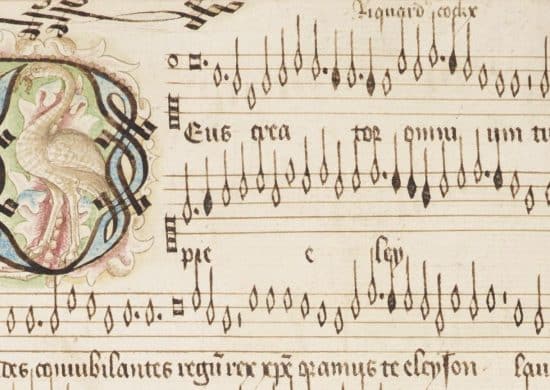 Riquard cockx
DEus crea tor omni um tu
pie e ley
des coniubilantes regū rex xp̄e oramus te eleyson lau